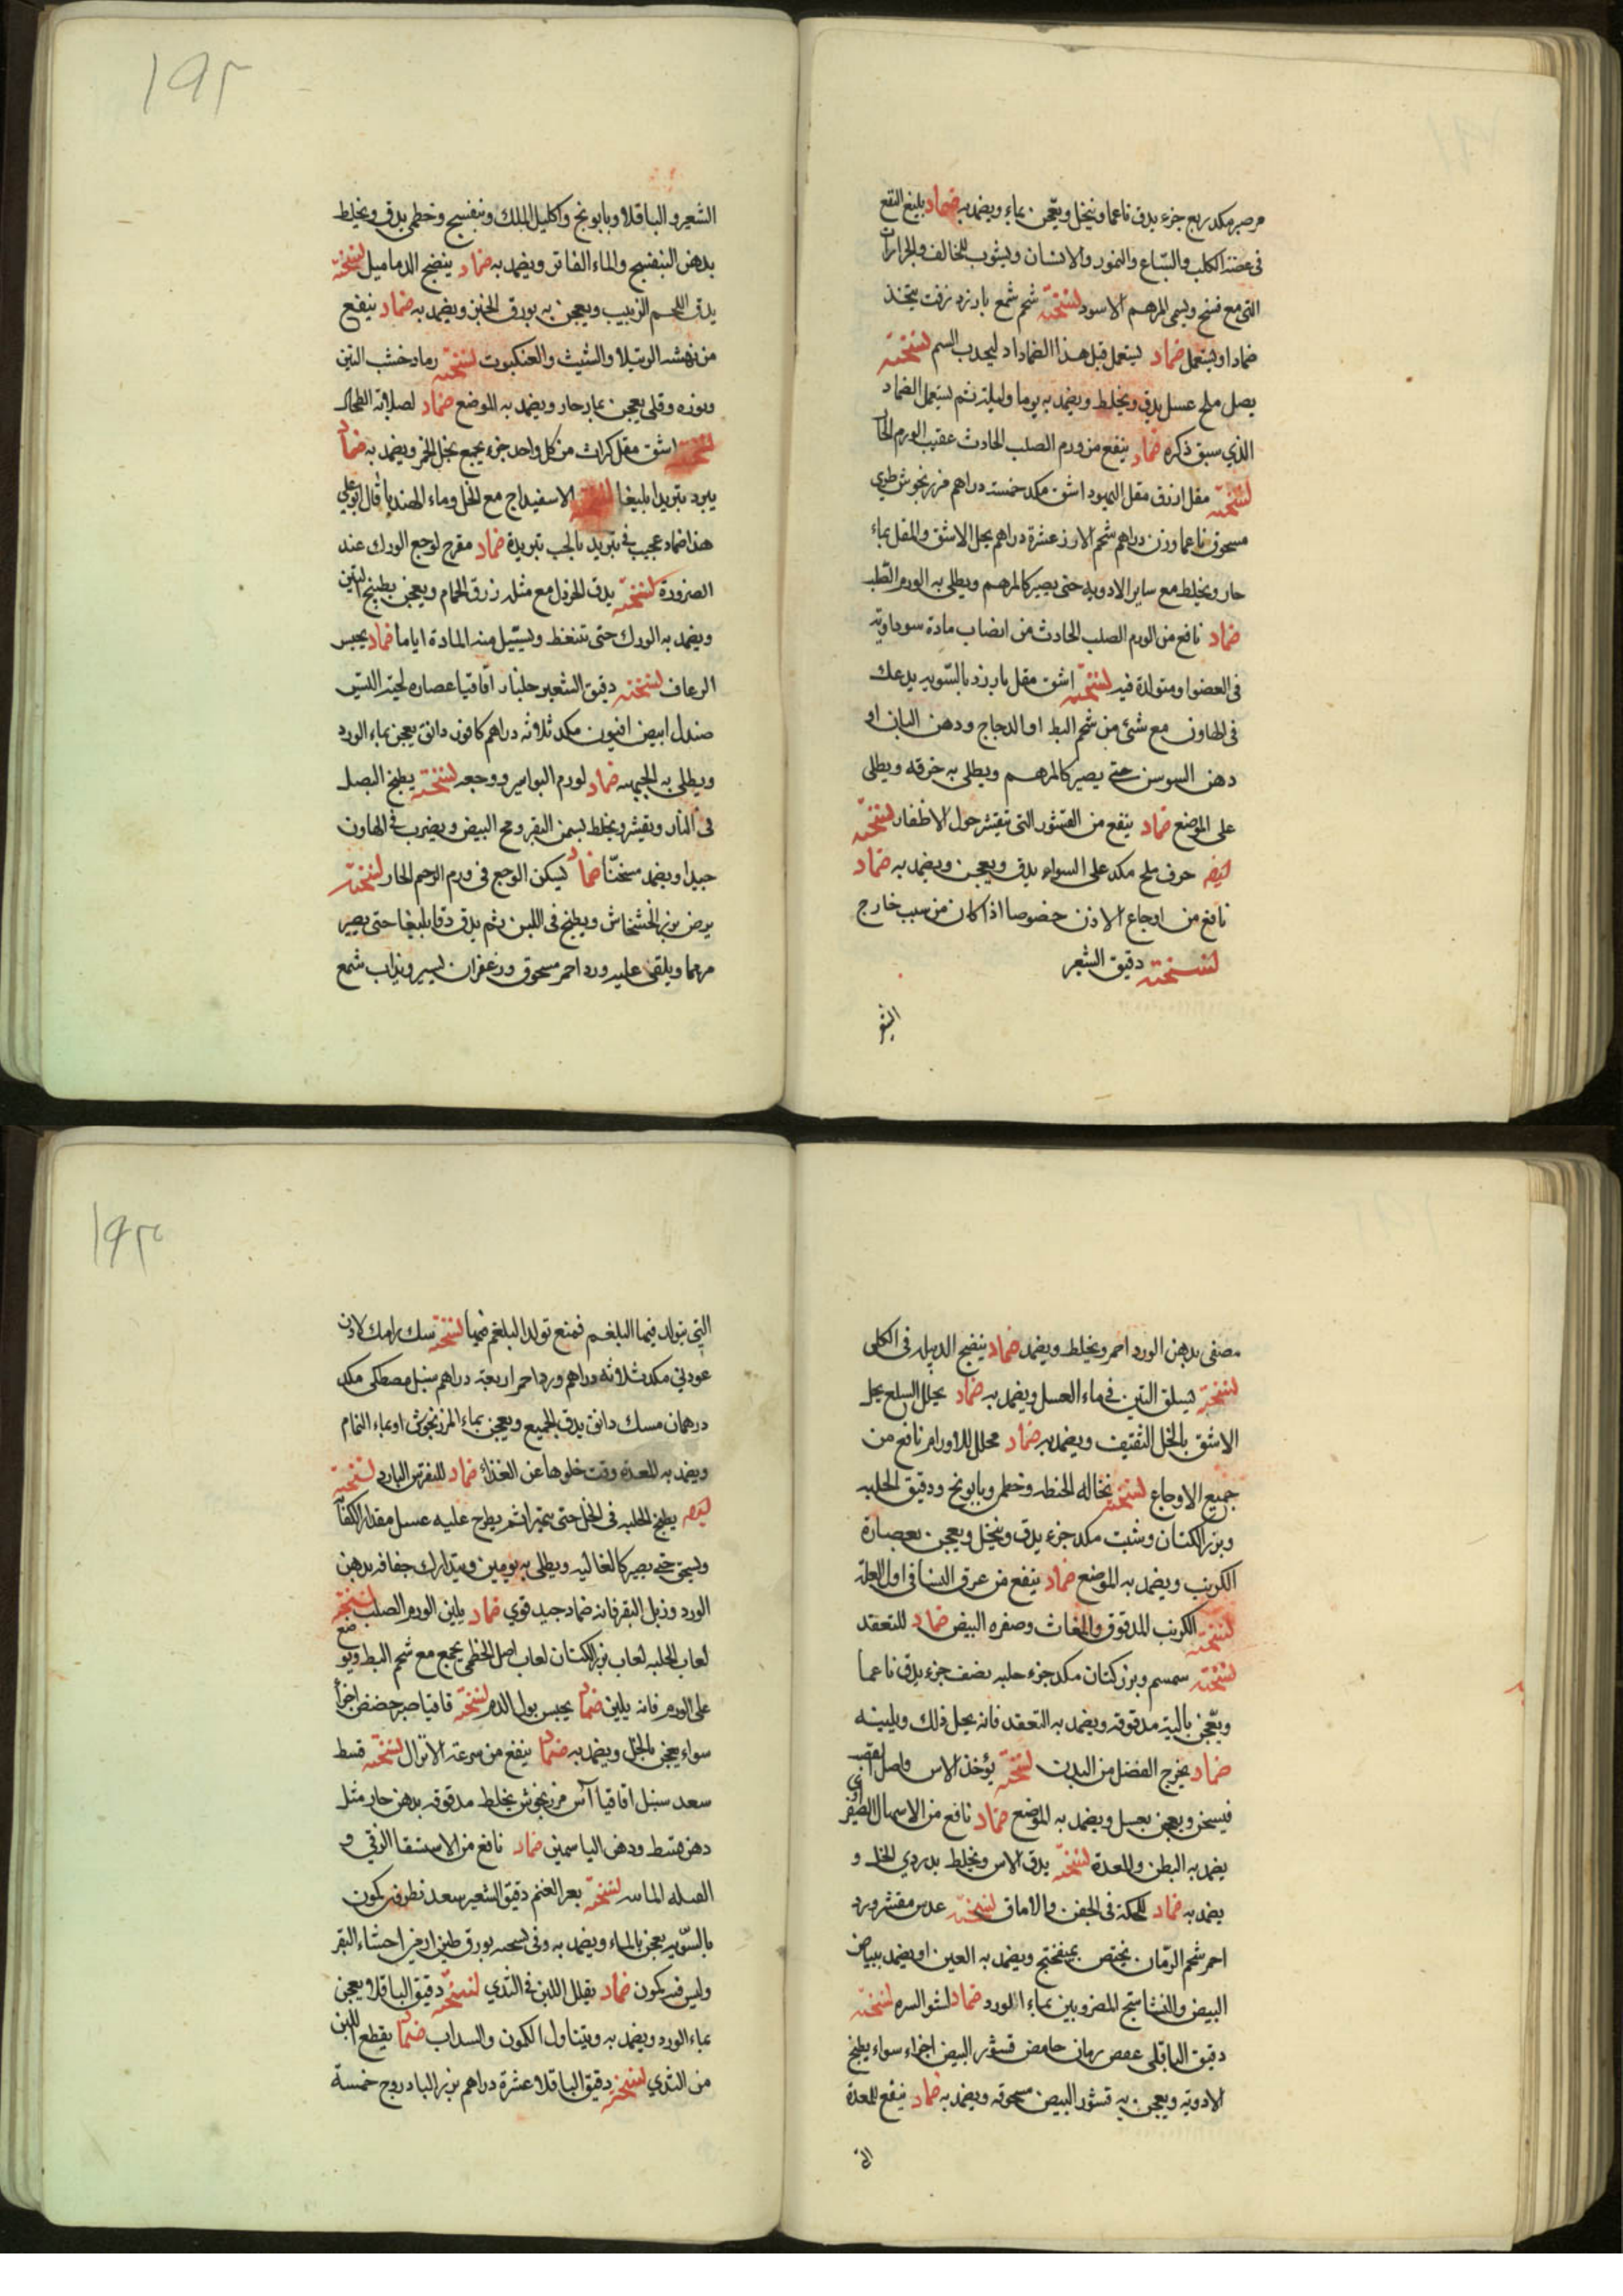 مر صبر مكد ربع جزء يدق ناعما وينخل ويعجن بماء ويضمد به ضماد بليغ النفع
فى عضة الكلب والسباع والنمور والانسان ويثوب للخالف والجراران
التى مع فسخ ويسمى المرهم الاسود لنسخته شحم شمع بارزد زفت يتخذ
ضمادا ويستعمل ضماد يستعمل قبل هذا الضماداد ليجدب السم لنسخته
بصل ملح عسل يدق ويخلط ويضمد به يوما وليلة ثم يستعمل الضماد
الذي سبق ذكره ضماد ينفع من ورم الصلب الحادث عقيب الورم الحار
لنسخته مقل ازرق مقل اليهود اشق مكد خمسة دراهم مرزنجوش طري
مسحوق ناعما وزن دراهم شحم الارز عشرة دراهم يحل الاشق والمقل بماء
حار ويخلط مع ساير الادويه حتى يصير كالمرهم ويطلى به الورم الصلب
ضماد نافع من الورم الصلب الحادث من انصاب مادة سوداوية
فى العضو او متولدة فيه لنسخته اشق مقل بارزد بالسويه يدعك
فى الهاون مع شئ من شحم البط او الدجاج ودهن البان او
دهن السوسن حتى يصير كالمرهم ويطلى به خرقه ويطلى
على الموضع ضماد ينفع من القشور التى تقشر حول الاظفار لنسخته
ايضا حرف ملح مكد على السواء يدق ويعجن ويضمد به ضماد
نافع من اوجاع الاذن خصوصا اذا كان من سبب خارج
لنسخته دقيق الشعر
الشعر
١٩٢
الشعير والباقلا وبابونج واكليل الملك وبنفسج وخطمى يدق ويخلط
بدهن البنفسج والماء الفاتر ويضمد به ضماد ينضج الدماميل لنسخته
يدق اللحم الزبيب ويعجن به بورق الخبز ويضمد به ضماد ينفع
من نهشه الرتيلا والشيث والعنكبوت لنسخته رماد خشب التين
ونوره وقلى يعجن بماء حار ويضمد به الموضع ضماد لصلابة الطحال
لنسخته اشق مقل كراث من كل واحد جزء يجمع بخل الخمر ويضمد به ضماد
يبرد تبريدا بليغا لنسخته الاسفيداج مع الخل وماء الهندبا قال ابو على
هذا ضماد عجيب فى تبريد بالجب تبريدة ضماد مقرح لوجع الورك عند
الضرورة لنسخته يدق الخردل مع مثله زرق الحمام ويعجن بطبيخ التين
ويضمد به الورك حتى تنغط ويسيل منه المادة اياما ضماد يحبس
الرعاف لنسخته دقيق الشعير جلنار اقاقيا عصاره لحية التيس
صندل ابيض افيون مكد ثلاثة دراهم كافور دانق يعجن بماء الورد
ويطلى به الجبهه ضماد لورم البواسير ووجعه لنسخته يطبخ البصل
فى النار ويقشر ويخلط بسمن البقر ومح البيض ويضرب فى الهاون
جيدا ويضمد مسخنا ضماد يسكن الوجع فى ورم الرحم الحار لنسخته
يرض بزر الخشخاش ويطبخ فى اللبن ثم يدق دقا بليغا حتى يصير
مرهما ويلقى عليه ورد احمر مسحوق وزعفران يسير ويذاب شمع
مصفى بدهن الورد احمر ويخلط ويضمد ضماد ينضج الدبيله فى الكلى
لنسخته يسلق التين فى ماء العسل ويضمد به ضماد يحلل السلع يحل
الاشق بالخل الثقيف ويضمد به ضماد محلل للاورام نافع من
جميع الاوجاع لنسخته نخاله الحنطه وخطمى وبابونج ودقيق الحلبه
وبزر الكتان وشبت مكد جزء يدق وينخل ويعجن بعصارة
الكرنب ويضمد به الموضع ضماد ينفع من عرق النسا فى اول العلة
لنسخته الكرنب المدقوق والمغاث وصفره البيض ضماد للتعقد
لنسخته سمسم وبزر كتان مكد جزء حلبه نصف جزء يدق ناعما
ويعجن بالية مدقوقه ويضمد به التعقد فانه يحل ذلك ويلينه
ضماد يخرج الفضل من البدن لنسخته يؤخذ الاس واصل القصب
فيسحن ويعجن بعسل ويضمد به الموضع ضماد نافع من الاسهال الصفراوى
يضمد به البطن والمعدة لنسخته يدق الاس ويخلط بدردي الخل و
يضمد به ضماد للحكة فى الجفن والاماق لنسخته عدس مقشر ورد
احمر شحم الرمان يختص بميفختج ويضمد به العين او يضمد ببياض
البيض والنشاستج المضروبين بماء الورد ضماد لنتو السره لنسخته
دقيق الباقلى عفص رمان حامض قشور البيض اجزاء سواء يطبخ
الادوية ويعجن به قشور البيض مسحوقه ويضمد به ضماد ينفع المعدة
التى
١٩٣
التى يتولد فيها البلغم فمنع تولد البلغم فيها لنسخته سك رامك لاذن
عود نى مكد ثلاثه دراهم ورد احمر اربعة دراهم سنبل مصطكى مكد
درهمان مسك دانق يدق الجميع ويعجن بماء المرزنجوش او بماء النمام
ويضمد به المعدة وقت خلوها عن الغذاء ضماد للنقرس البارد لنسخته
ايضا يطبخ الحلبه فى الخل حتى يتهرا ثم يطرح عليه عسل مقدار الكفاية
ويسحق حتى يصير كالغاليه ويطلى به يومين ويتدارك جفافه بدهن
الورد وزبل البقر فانه ضماد جيد قوي ضماد يلين الورم الصلب لنسخته
لعاب الحلبه لعاب بزر الكتان لعاب اصل الخطمى يجمع مع شحم البط ويوضع
على الورم فانه يلين ضماد يحبس بول الدم لنسخته قاقيا صبر حضض اجزأ
سواء يعجن بالخل ويضمد به ضماد ينفع من سرعة الانزال لنسخته قسط
سعد سنبل اقاقيا آس مرزنجوش يخلط مدقوقه بدهن حار مثل
دهن قسط ودهن الياسمين ضماد نافع من الاستسقا الزقى و
الصله الماسه لنسخته بعر الغنم دقيق الشعير سعد نطرون كمون
بالسويه يعجن بالماء ويضمد به وفى نسخه بورق طين ارمنى احشاء البقر
وليس فيه كمون ضماد يقلل اللبن فى الثدي لنسخته دقيق الباقلا ويعجن
بماء الورد ويضمد به ويتناول الكمون والسداب ضماد يقطع اللبن
من الثدي لنسخته دقيق الباقلا عشرة دراهم بزر البادروج خمسة